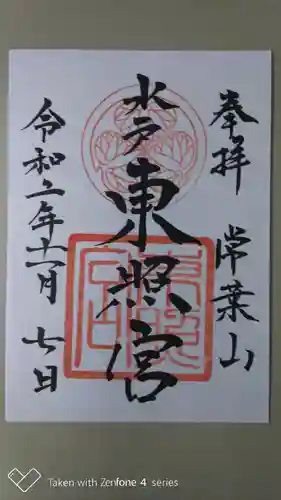 奉拝 常葉山
水戸東照宮
令和二年十一月七日
Taken with Zenfone 4 series